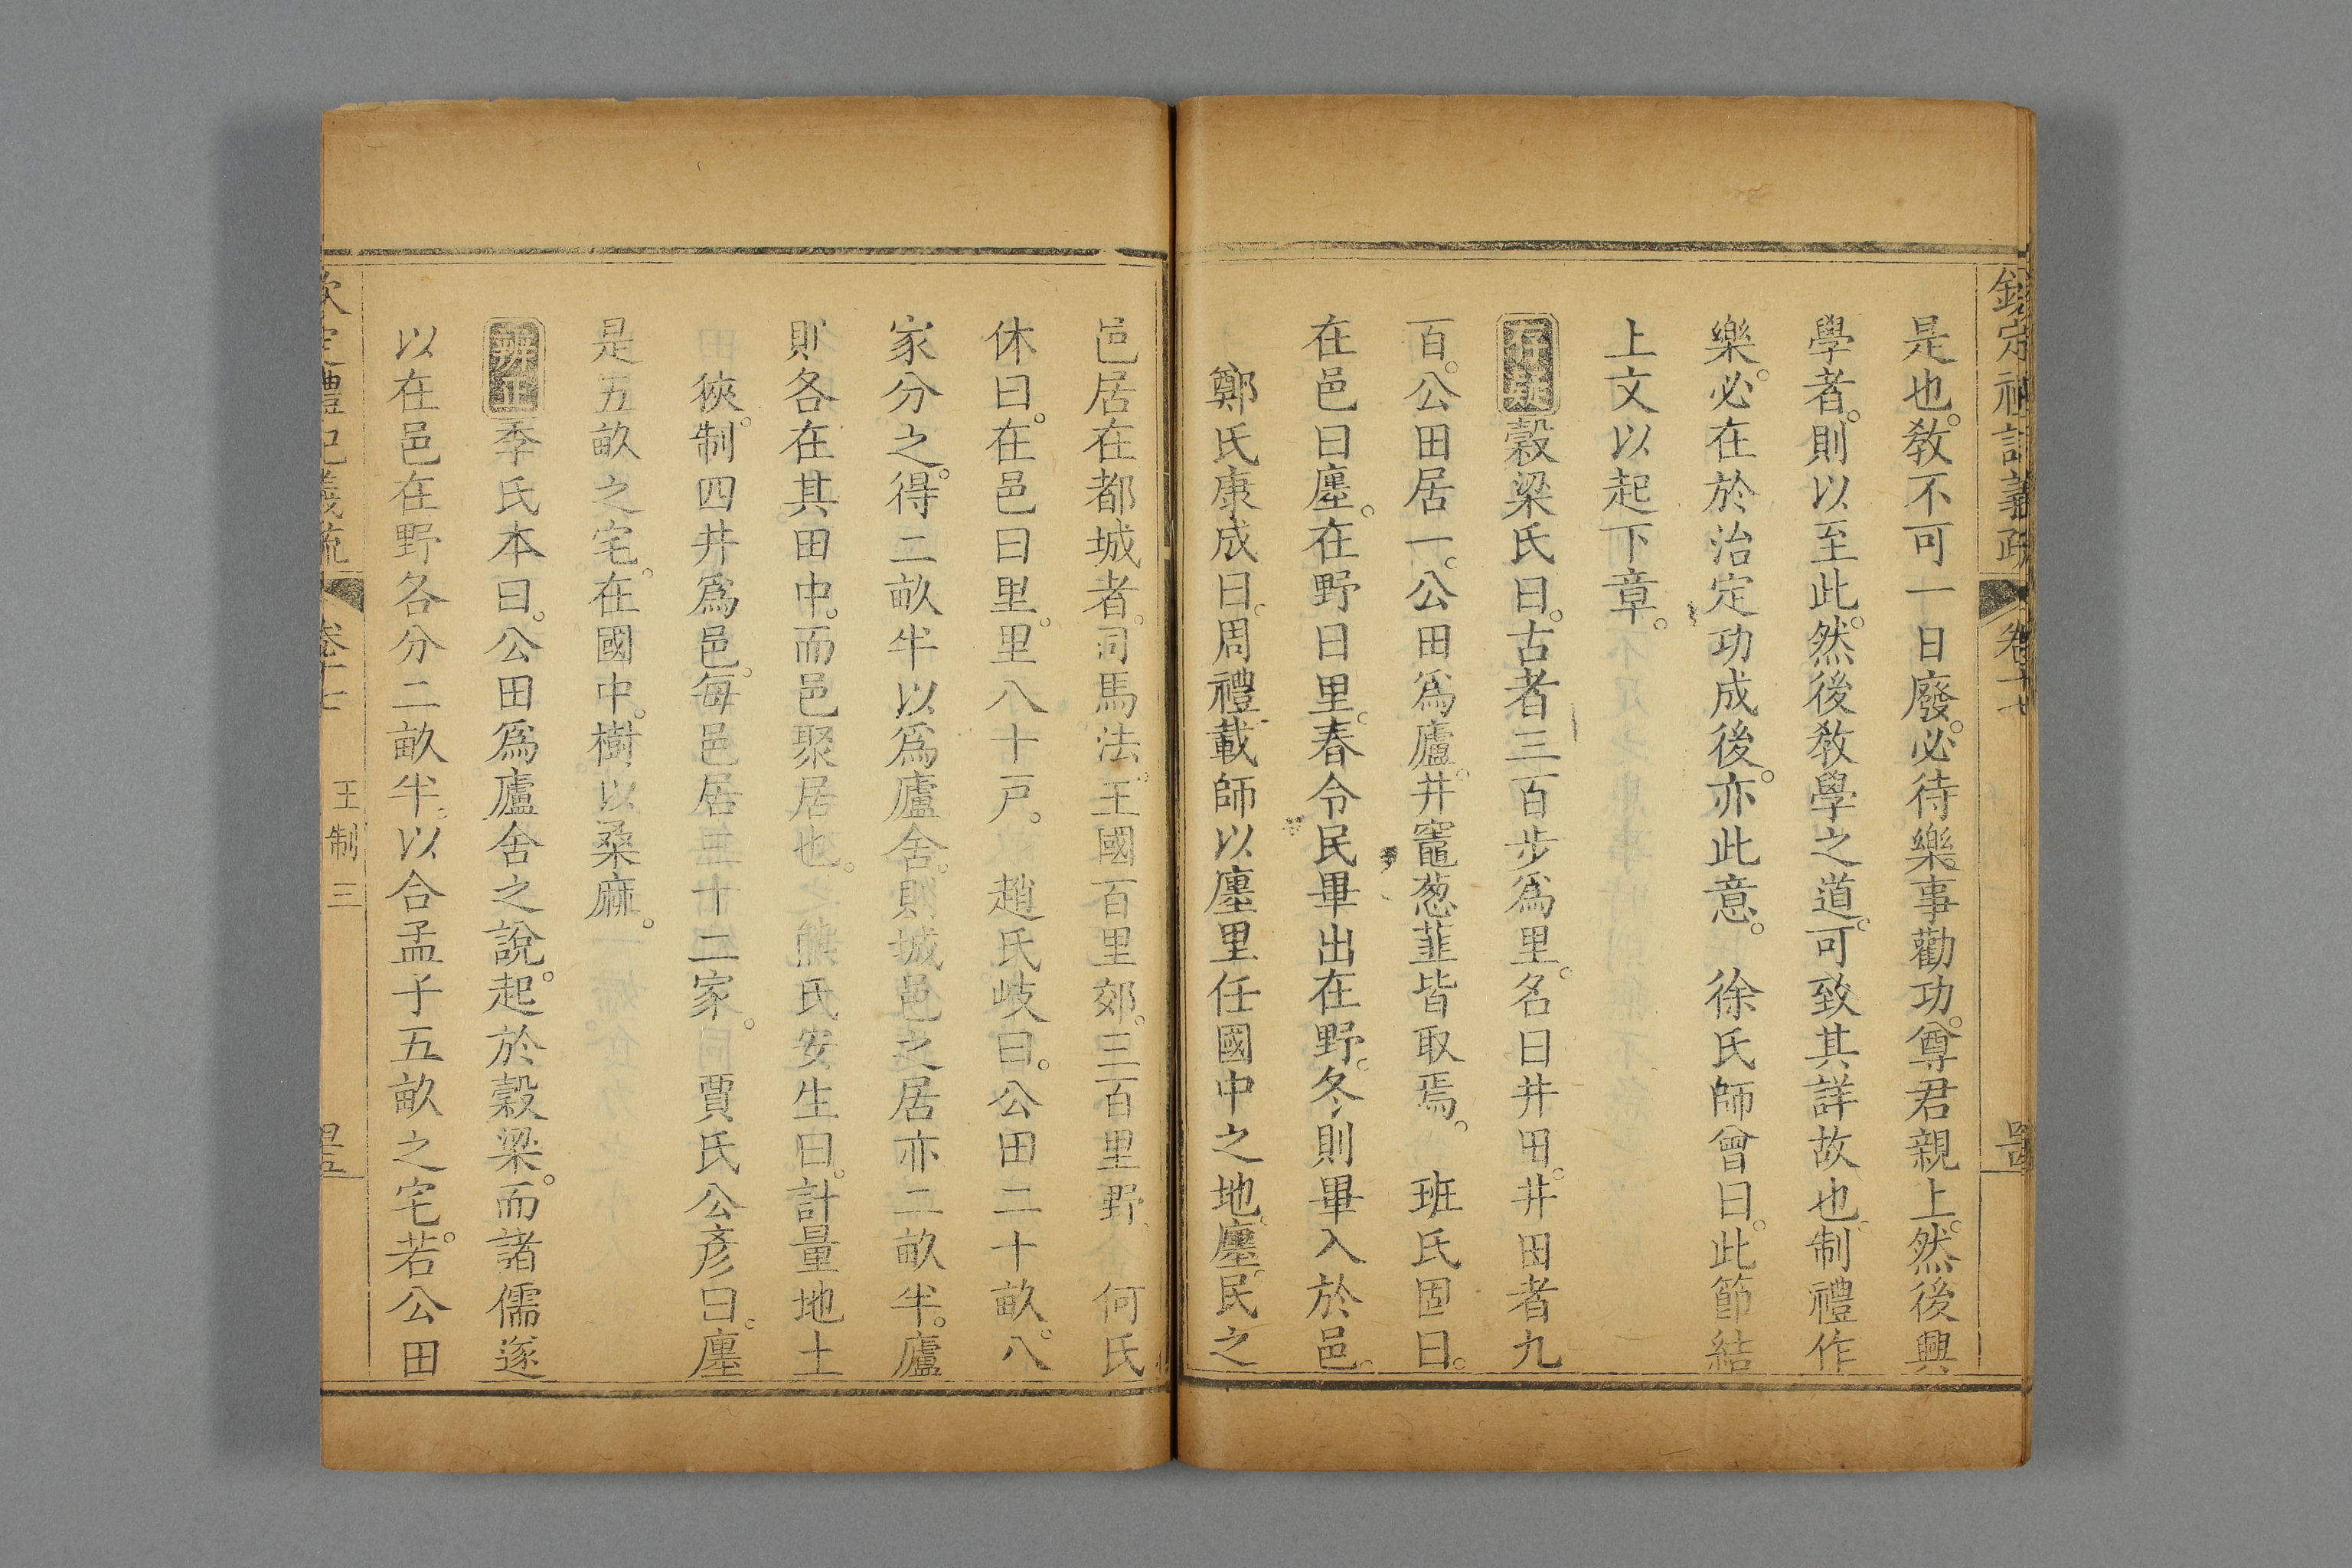 欽定禮記義疏 卷十七
是也。敎不可一日廢。必待樂事勸功。尊君親上。然後興
學者。則以至此。然後敎學之道。可致其詳故也。制禮作
樂。必在於治定功成後。亦此意。 徐氏師曾曰。此節結
上文以起下章。
存疑 穀梁氏曰。古者三百步爲里。名曰井田。井田者九
百。公田居一。公田爲廬。井竈葱韮皆取焉。 班氏固曰。
在邑曰廛。在野曰里。春令民畢出在野。冬則畢入於邑。
鄭氏康成曰。周禮載師以廛里任國中之地。廛。民之
邑居在都城者。司馬法。王國百里郊。三百里野。 何氏
休曰。在邑曰里。里八十戸。 趙氏岐曰。公田二十畝。八
家分之。得二畝半以爲廬舍。則城邑之居亦二畝半。廬
則各在其田中。而邑聚居也。 熊氏安生曰。計量地土
狹。制四井爲邑。每邑居無十二家。 賈氏公彥曰。廛
是五畝之宅。在國中。樹以桑麻。
辨正 季氏本曰。公田爲廬舍之說。起於穀梁。而諸儒遂
以在邑在野各分二畝半。以合孟子五畝之宅。若公田
欽定禮記義疏 卷十七 王制三